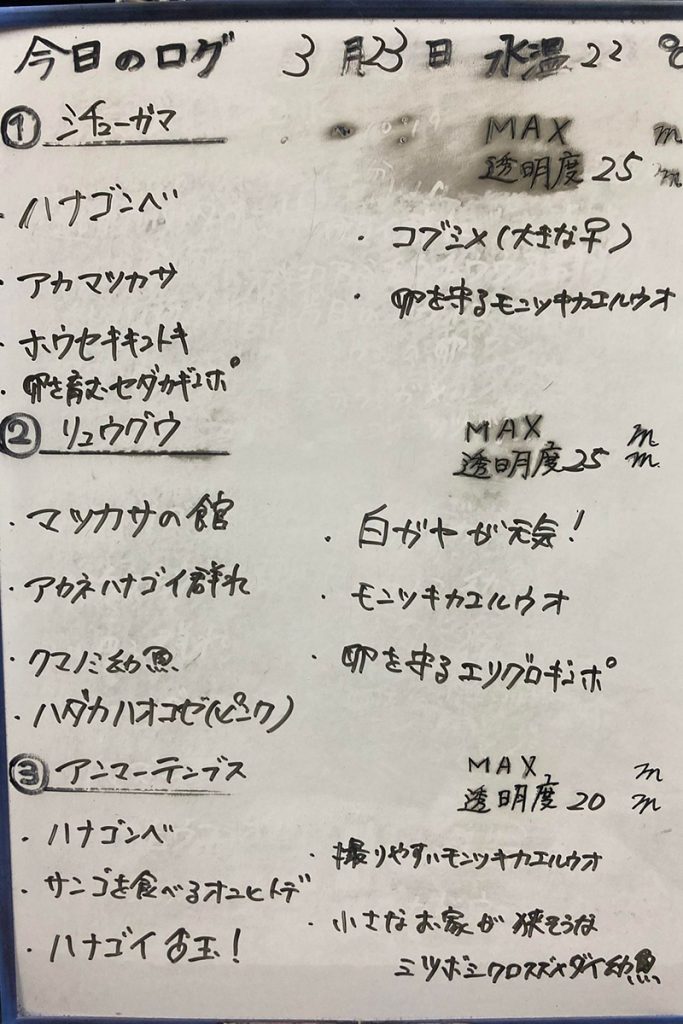 今日のログ 3月23日 水温22℃
① シチューガマ
MAX m
透明度25 m
・ハナゴンベ
・アカマツカサ
・ホウセキキントキ
・卵を育むセダカギンポ
・コブシメ(大きな♀)
・卵を守るモンツキカエルウオ
② リュウグウ
MAX m
透明度25 m
・マツカサの館
・アカネハナゴイ群れ
・クマノミ幼魚
・ハダカハオコゼ(ピンク)
・白ガヤが元気!
・モンツキカエルウオ
・卵を守るエリグロギンポ
③ アンマーテンブス
MAX m
透明度20 m
・ハナゴンベ
・サンゴを食べるオニヒトデ
・ハナゴイ 玉!
・撮りやすいモンツキカエルウオ
・小さなお家が狭そうな
ミツボシクロスズメダイ幼魚